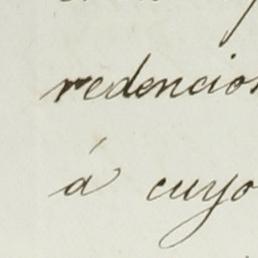 redencion
á cuyo